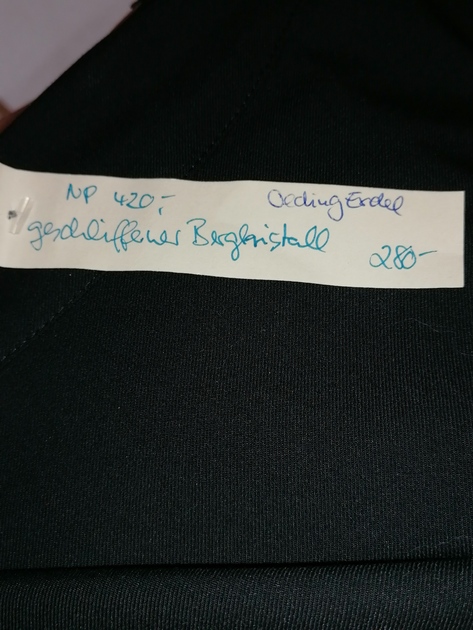 NP 420,- Oeding Erdel
geschliffener Bergkristall 280-